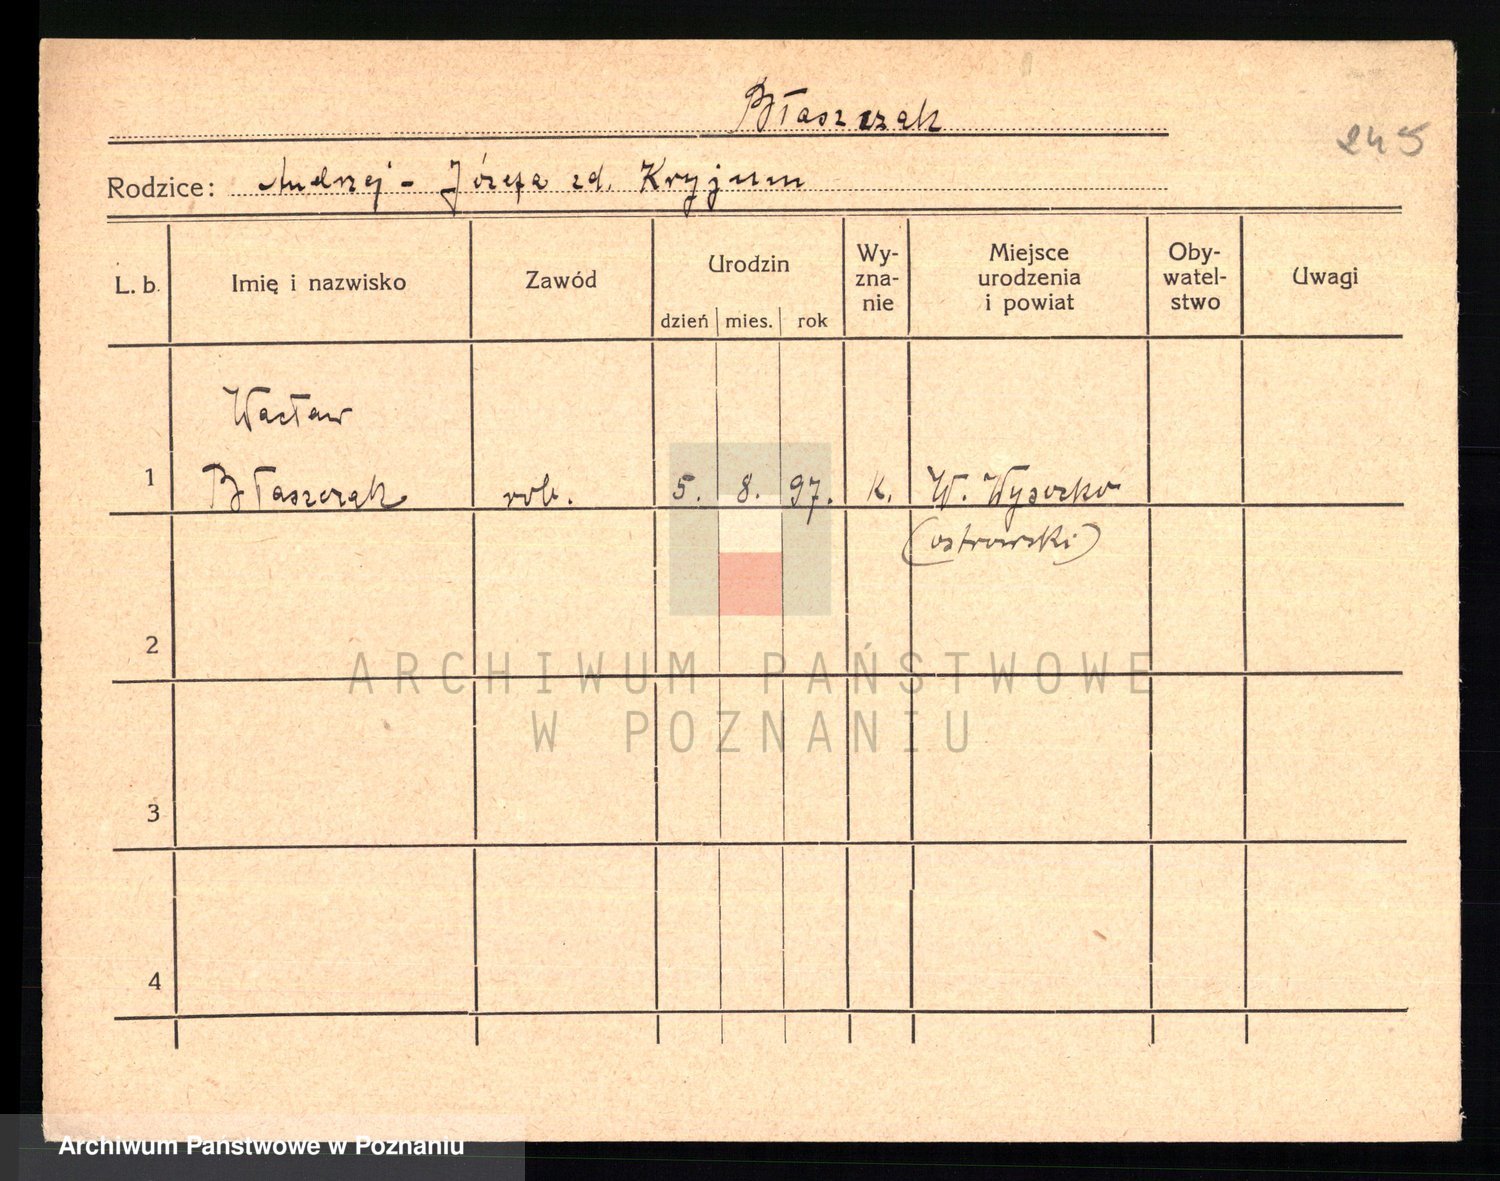 Błaszczak
245
Rodzice: Andrzej - Józefa zd. Kryjum
L. b. Imię i nazwisko Zawód Urodzin Wy-zna-nie Miejsce urodzenia i powiat Oby-watel-stwo Uwagi
dzień mies. rok
Wacław
1 Błaszczak rob. 5. 8. 97. k. W. Wysocko
(ostrowski)
2
ARCHIWUM PAŃSTWOWE
W POZNANIU
3
4
Archiwum Państwowe w Poznaniu